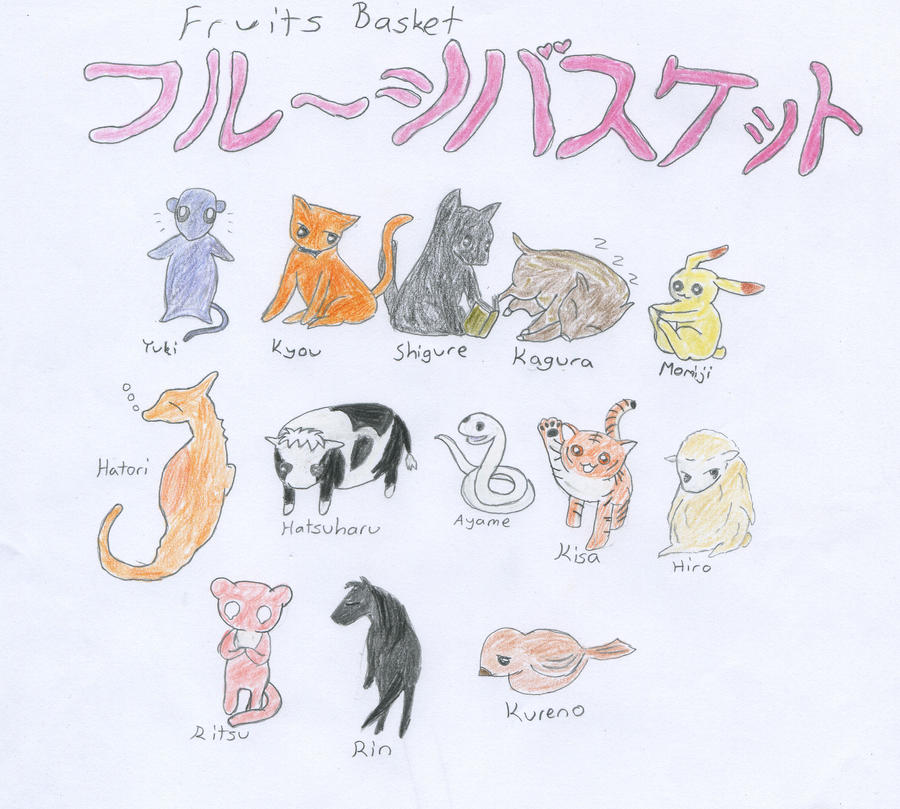 Fruits Basket
フルーシバスケット
z z z
Yuki Kyou Shigure Kagura Momiji
Hatori Hatsuharu Ayame Kisa Hiro
Ritsu Rin Kureno